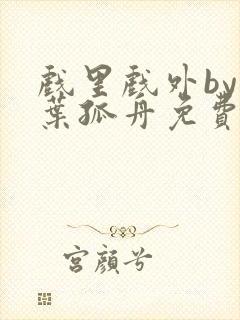 戲里戲外by
葉孤舟免費
宮顏兮